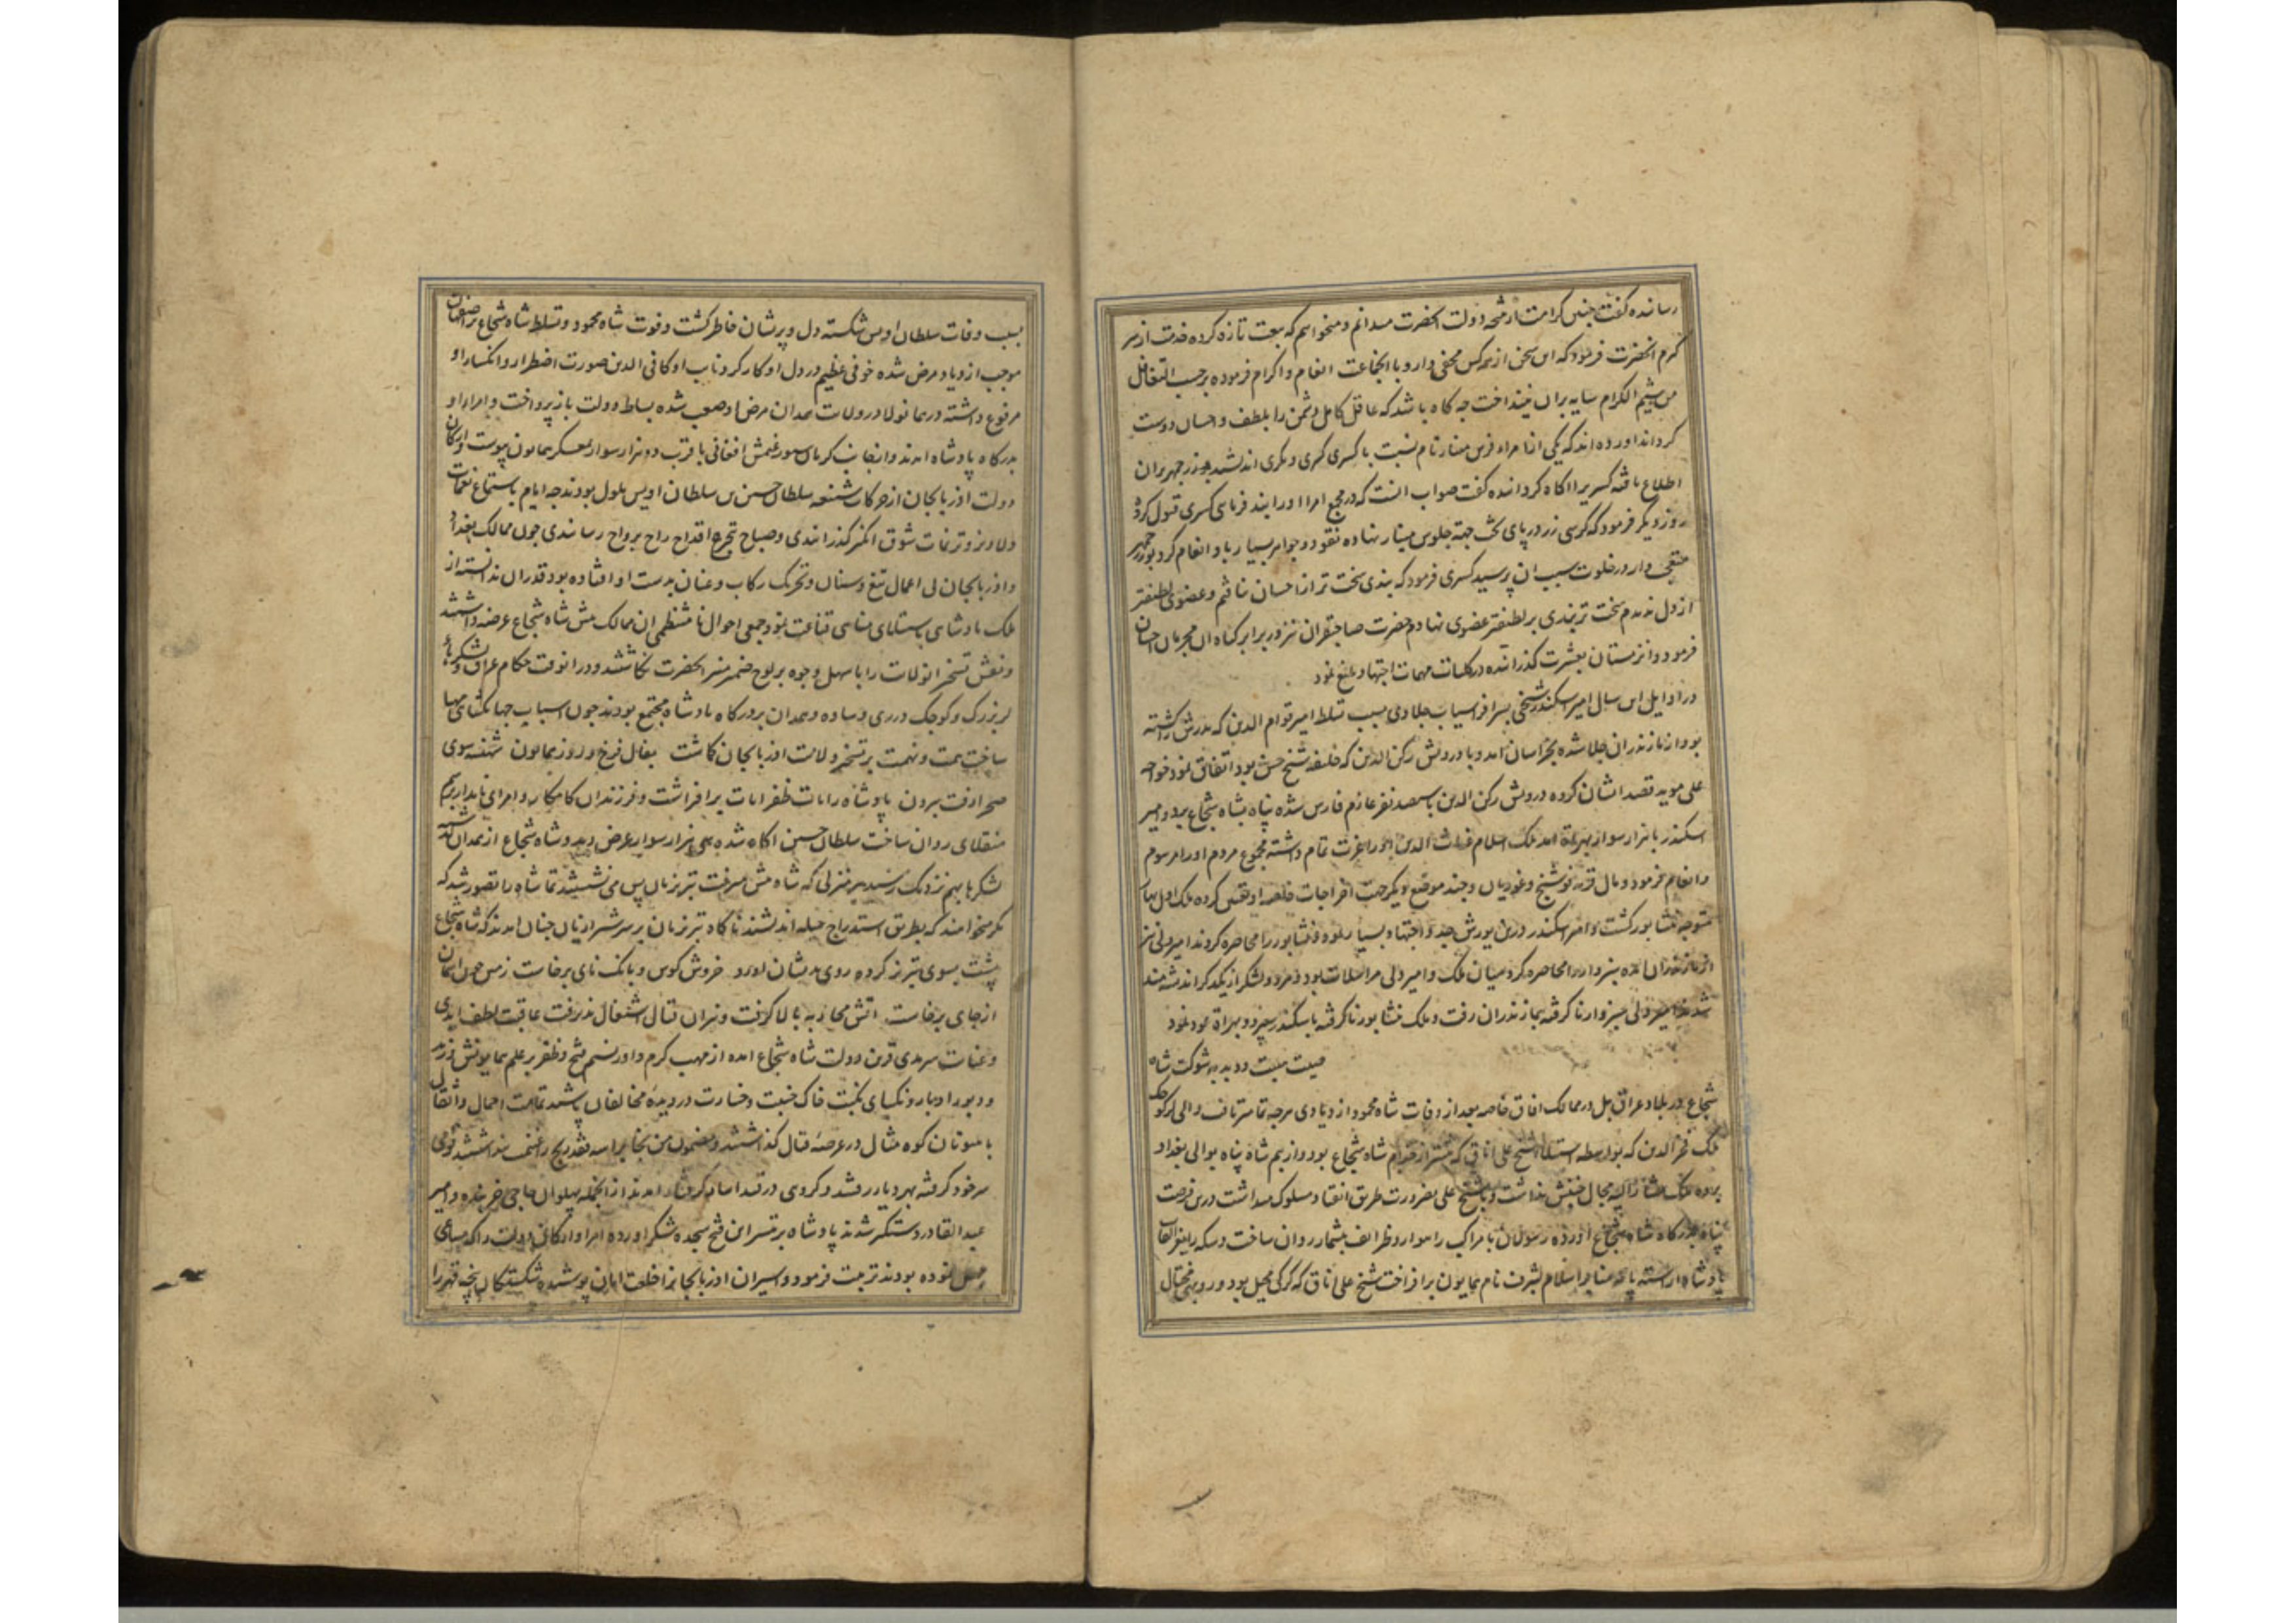 رسانده گفت چنین کرامت از شمه دولت انحضرت میدانم و میخواهم که بیعت تازه کرده خدمت از سر
کرم انحضرت فرمود که این سخن از همه کس مخفی دار و با انجماعت انعام و اکرام فرموده برحسب التغافل
من شیم الکرام سایه بران نینداخت چه کاه باشد که عاقل کامل دشمن را بلطف و احسان دوست
کرداند اورده اند که یکی از امراء فرس نام نسبت با کسری کری و مکری اندیشید بوزرجمهر بران
اطلاع یافته کسری را اکاه کردانده کفت صواب انست که در مجمع امرا او را بند فرمای کسری قبول کرد
روز دیکر فرمود که کرسی زر در پای تخت جهة جلوس نهاده نقود و جواهر بسیار باو انعام کرد بوزرجمهر
در خلوت سبب ان پرسید کسری فرمود که بندی سخت تر از احسان نیافتم و عضوی لطیفتر
از دل ندیدم سخت تر بندی بر لطیفتر عضوی نهادم حضرت صاحبقران نیز در برابر کناه ان مجرمان احسان
فرمود و ان زمستان بعشرت کذرانده در کلیات مهمات اجتهاد بلیغ نمود
در اوایل این سال امیر اسکندر شیخی پسر افراسیاب جلاوی بسبب تسلط امیر قوام الدین که پدرش را کشته
بود از مازندران جلا شده بخراسان امد و با درویش رکن الدین که خلیفه شیخ حسن بود اتفاق نمود خواجه
علی موید قصد ایشان کرده درویش رکن الدین با سیصد نفر عازم فارس شده پناه بشاه شجاع برد و امیر
اسکندر با هزار سوار بهراة امد ملک اسلام غیاث الدین او را عزت تمام داشته مجموع مردم او را مرسوم
و انعام فرمود و مال فوشنج و غوریان و چند موضع دیکر جهت اخراجات خاصه او تعیین کرده ملک اول بهار
متوجه نشابور کشت و امیر اسکندر درین یورش جد و اجتهاد بسیار نمود و نشابور را محاصره کردند امیر ولی نیز
از مازندران امده سبزوار را محاصره کرد میان ملک و امیر ولی مراسلات بود و هر دو لشکر از یکدکر اندیشه مند
شدند امیر ولی سبزوار ناکرفته بمازندران رفت و ملک نشابور ناکرفته با اسکندر بهراة عود نمود
صیت هیبت و دبدبه شوکت شاه
شجاع در بلاد عراق بل در ممالک افاق خاصه بعد از وفات شاه محمود ازدیادی هرچه تمامتر یافت والی لر کوچک
ملک عز الدین که بواسطه استیلاء شیخ علی ایناق که از خدام شاه شجاع بود و از بیم شاه پناه بوالی بغداد
برده ملک مشار الیه مجال جنبش نداشت و با شیخ علی بضرورت طریق انقیاد مسلوک میداشت درین فرصت
پناه بدرکاه شاه شجاع اورده رسولان با مراکب راهوار و ظرایف بیشمار روان ساخت و سکه را بعز القاب
پادشاه اراسته پایه منابر اسلام بشرف نام همایون برافراخت شیخ علی ایناق که کرکی محیل بود و روبهی محتال
بسبب وفات سلطان اویس شکسته دل و پریشان خاطر کشت و فوت شاه محمود و تسلط شاه شجاع بر اصفهان
موجب ازدیاد مرض شده خوفی عظیم در دل او کار کرد نایب او کافی الدین صورت اضطرار و انکسار او
مرفوع داشته در همانولا در ولایت همدان مرض او صعب شده بساط دولت باز پرداخت و امراء او
بدرکاه پادشاه امدند و از جانب کرمان سیورغتمش افغانی با قرب دو هزار سوار بمعسکر همایون پیوست و ارکان
دولت اذربایجان از حرکات شنیعه سلطان حسین بن سلطان اویس ملول بودند چه ایام باستماع نغمات
دلاویز و ترنمات شوق انکیز کذرانیدی و صباح بتجرع اقداح راح برواح رساندی چون ممالک بغداد
و اذربایجان بی اعمال تیغ و سنان و تحریک رکاب و عنان بدست او افتاده بود قدر ان ندانسته از
ملک و پادشاهی باستماع مناهی قناعت نمود جمعی احوال نامنتظمی ان ممالک پیش شاه شجاع عرضه داشتند
و نقش تسخیر انولایت را باسهل وجوه بر لوح ضمیر منیر انحضرت نکاشتند و درانوقت حکام عراق و لشکرهاء
لر بزرک و کوچک و ری و ساوه و همدان بدرکاه پادشاه مجتمع بودند چون اسباب جهانکشایی مهیا
ساخت همت و نهمت بر تسخیر ولایت اذربایجان کماشت بفال فرخ و روز همایون شهنشه سوی
صحرا رفت بیرون پادشاه رایات ظفر ایات برافراشت و فرزندان کامکار و امرای نامدار برسم
منقلای روان ساخت سلطان حسین اکاه شده سی هزار سوار عرض دید و شاه شجاع از همدان کذشته
لشکرها بهم نزدیک رسید هر منزلی که شاه پیش میرفت تبریزیان پس می نشستند تا شاه را تصور شد که
مکر میخواهند که بطریق استدراج حیله اندیشند ناکاه تبریزیان بر سر شیرازیان چنان امدند که شاه شجاع
پشت بسوی تبریز کرده روی بدیشان اورد خروش کوس و بانک نای برخاست زمین چون اسمان
از جای برخاست اتش محاربه بالا کرفت و نیران قتال اشتعال پذیرفت عاقبت لطف ایزدی
و عنایت سرمدی قرین دولت شاه شجاع امده از مهب کرم داور نسیم فتح و ظفر بر علم همایونش وزید
و دبور ادبار و نکبای نکبت خاک خیبت و خسارت در دیده مخالفان پاشید تمامت احمال و اثقال
با ستوران کوه مثال در عرصه قتال کذاشتند و مضمون من نجا براسه فقد ربح را غنیمت پنداشتند قومی
سر خود کرفته بهر دیار رفتند و کروهی در قید اسار کرفتار امدند از انجمله پهلوان حاجی خربنده و امیر
عبد القادر دستکیر شدند پادشاه بر تیسر این فتح سجده شکر اورده امرا و ارکان دولت را که مساعی
جمیل نموده بودند تربیت فرمود و اسیران اذربایجانرا خلعت امان پوشیده شکستکان پنجه قهر را